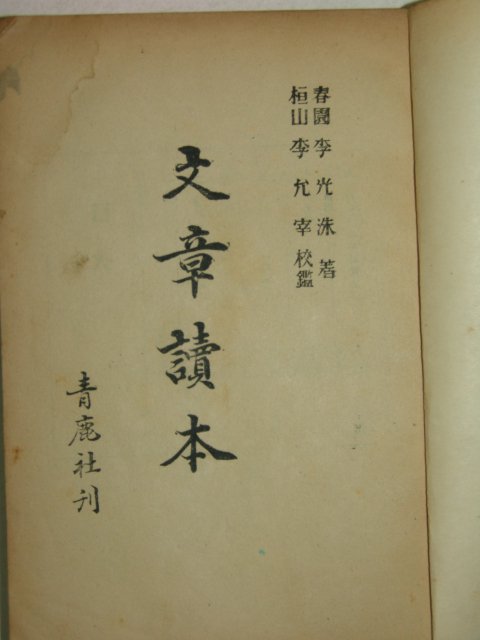 春園 李光洙 著
桓山 李允宰 校鑑
文章讀本
青鹿社刊